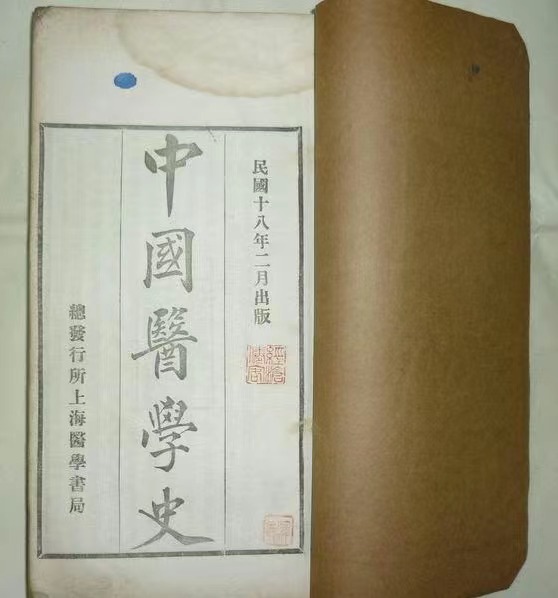 民國十八年二月出版
中國醫學史
總發行所上海醫學書局